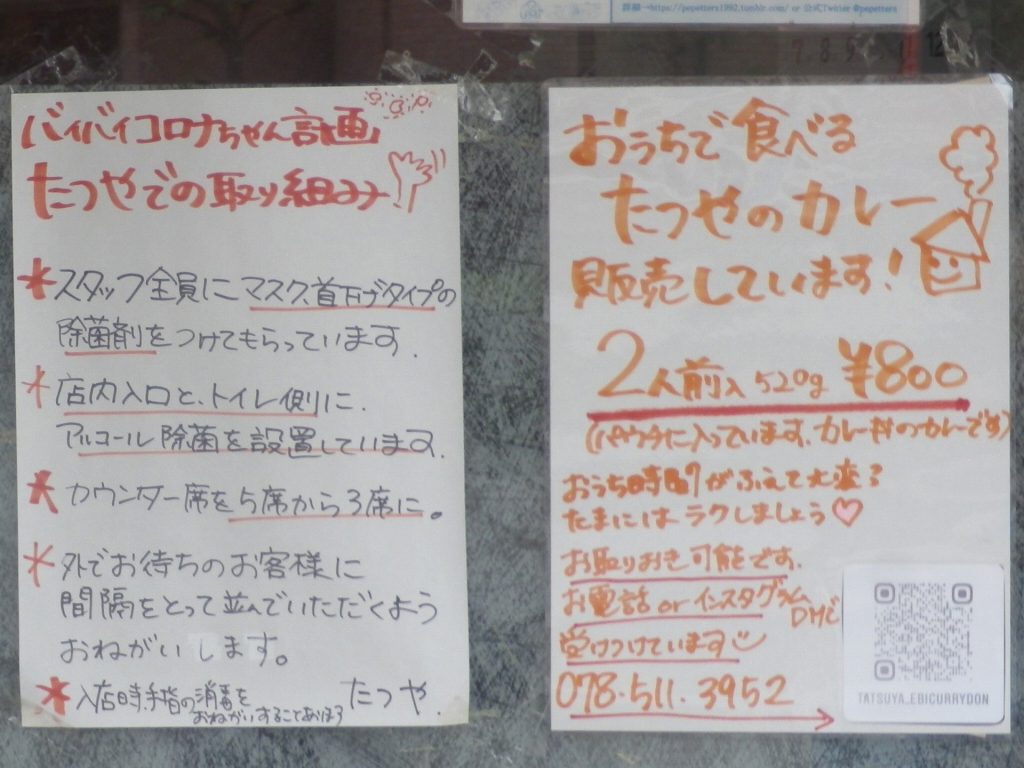 詳細→https://pepetters1992.tumblr.com/ or 公式Twitter @pepetters
バイバイコロナちゃん計画
たつやでの取り組み
*スタッフ全員にマスク、首下げタイプの
除菌剤をつけてもらっています.
*店内入口と、トイレ側に、
アルコール除菌を設置しています.
*カウンター席を5席から3席に。
*外でお待ちのお客様に
間隔をとって並んでいただくよう
おねがいします。
*入店時、手指の消毒を
おねがいすることあり
たつや.
おうちで食べる
たつやのカレー
販売しています!
2人前入 520g ¥800
(パウチに入っています、カレー丼のカレーです)
おうち時間がふえて大変?
たまにはラクしましょう♡
お取りおき可能です.
お電話 or インスタグラム
DMで
受けつけています
078.511.3952
TATSUYA_EBICURRYDON